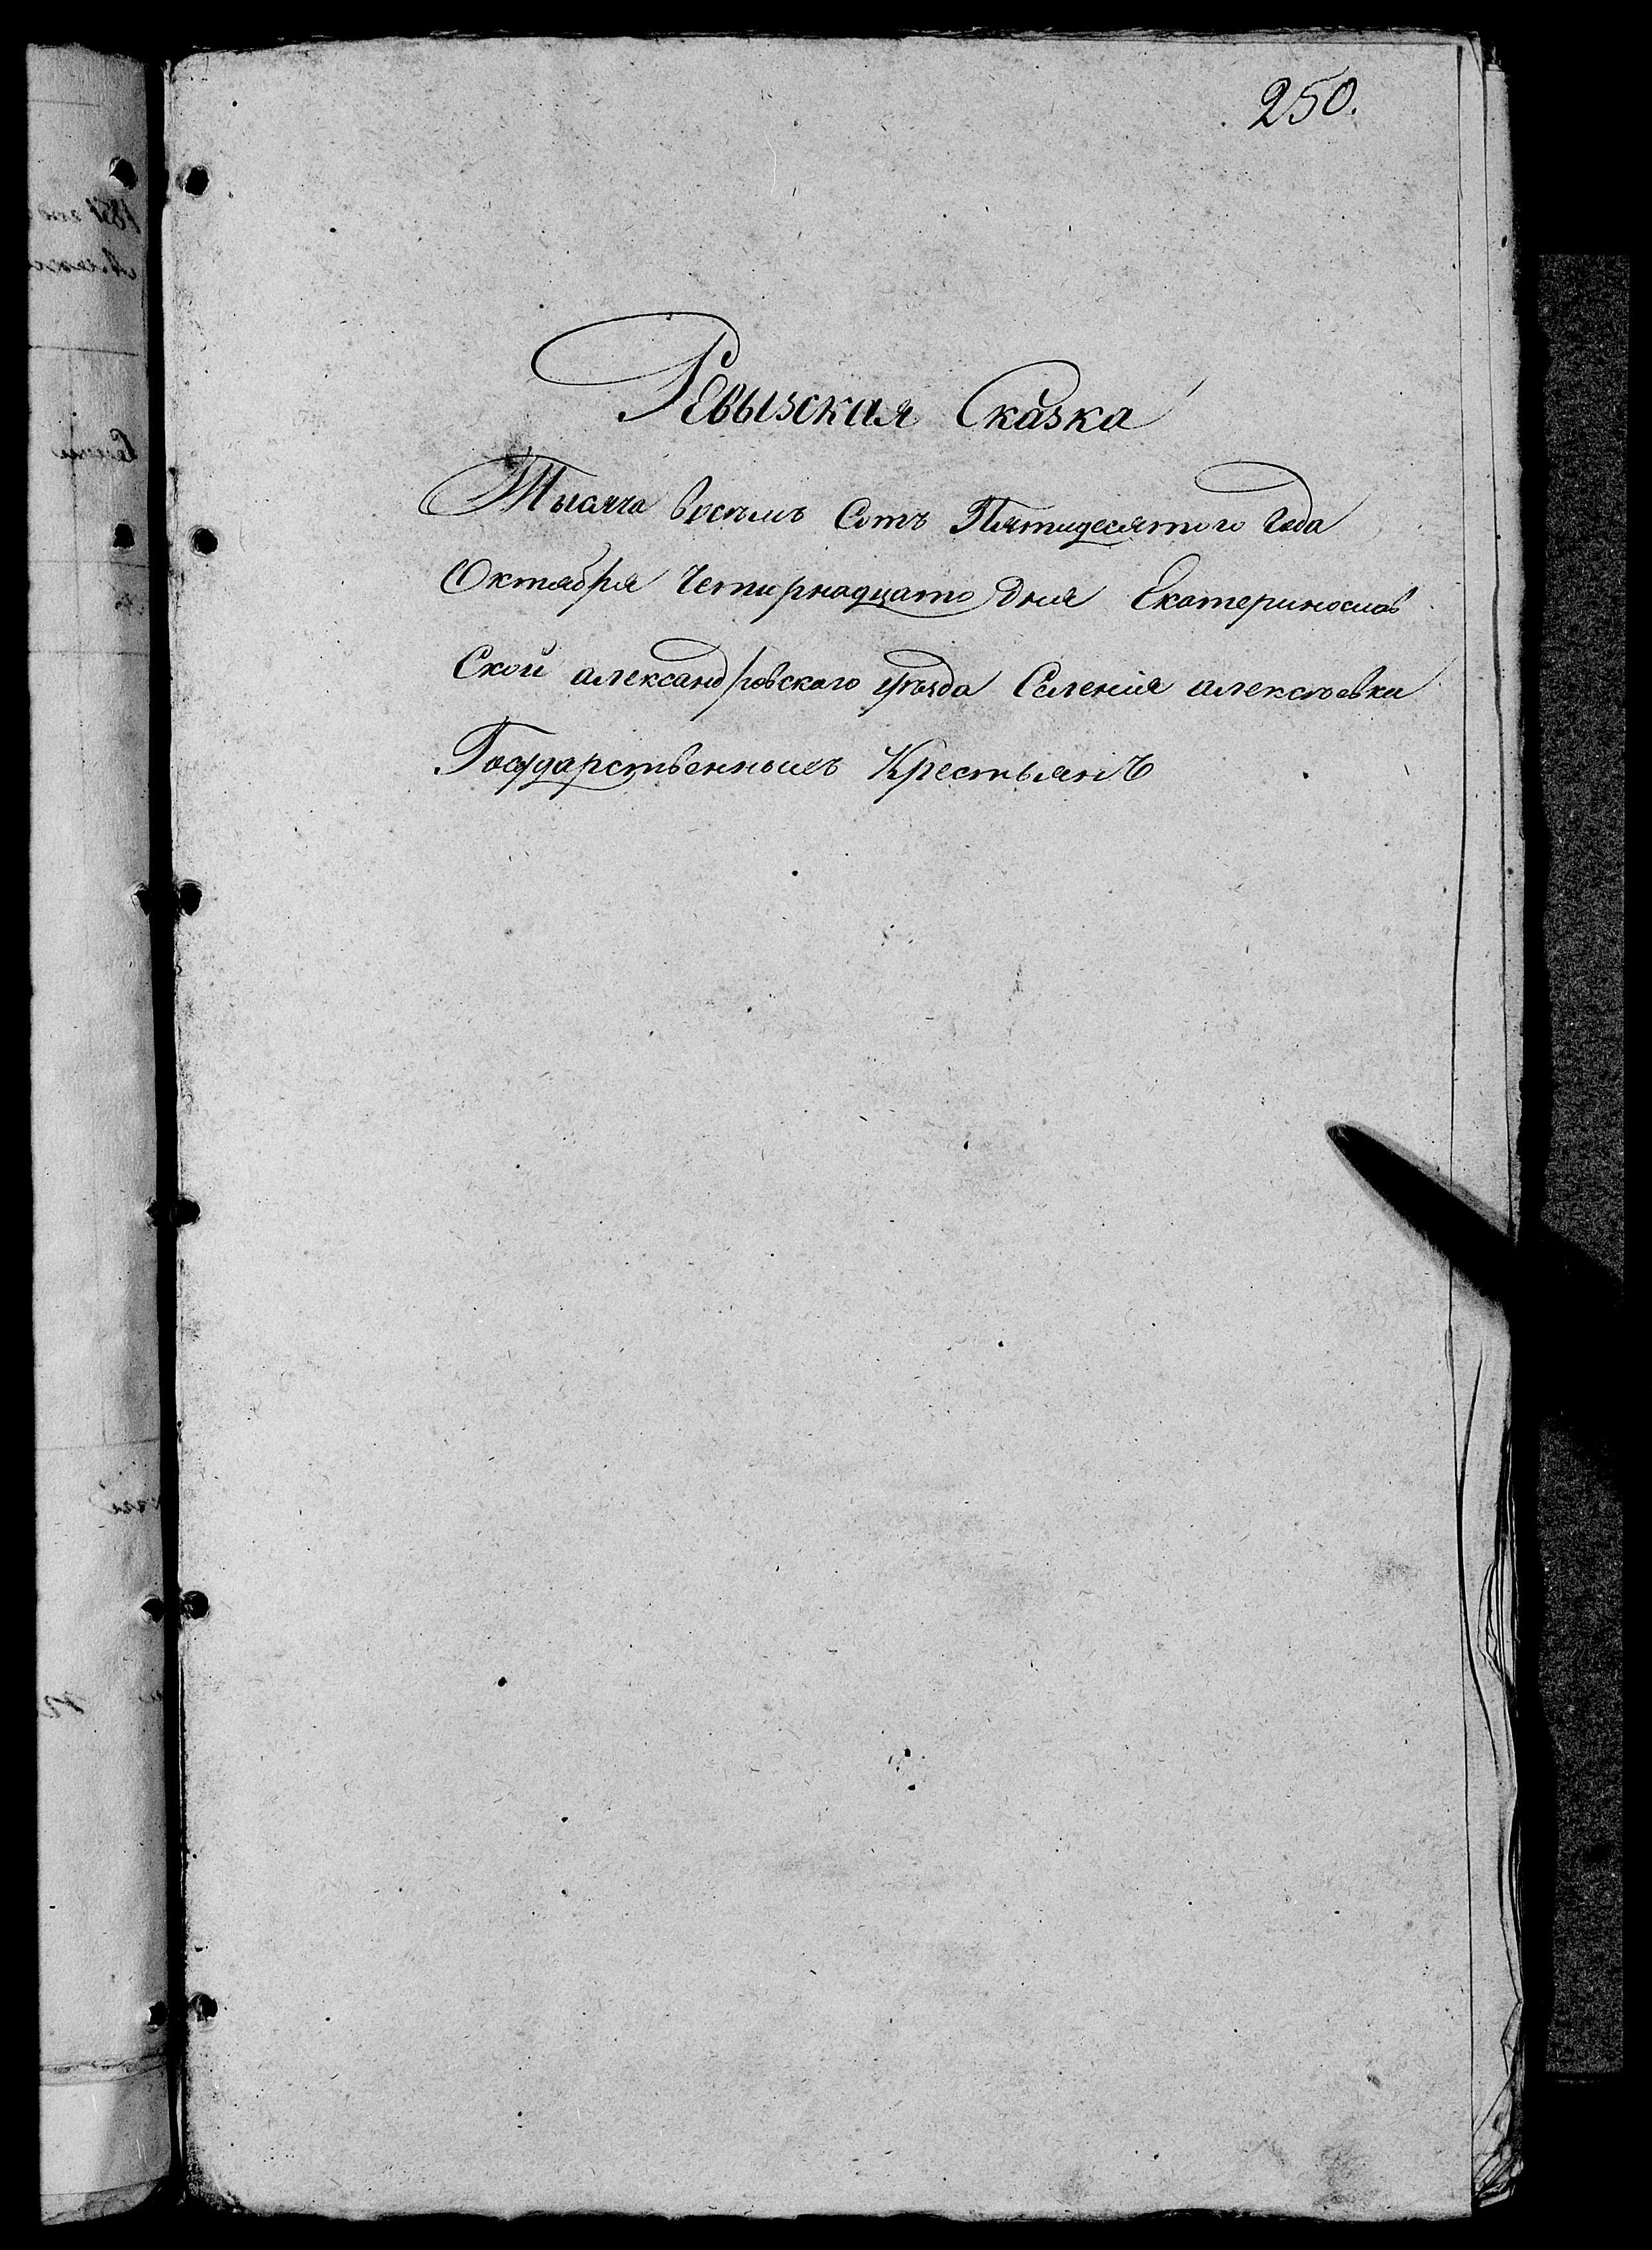 250.
Ревызская Сказка
Тысяча восемь Сотъ Пятидесятого года
Октября Четирнадцато дня Екатеринослав
Ской александровского уѣзда Селенія алексѣевки
Государственныхъ Крестьянъ